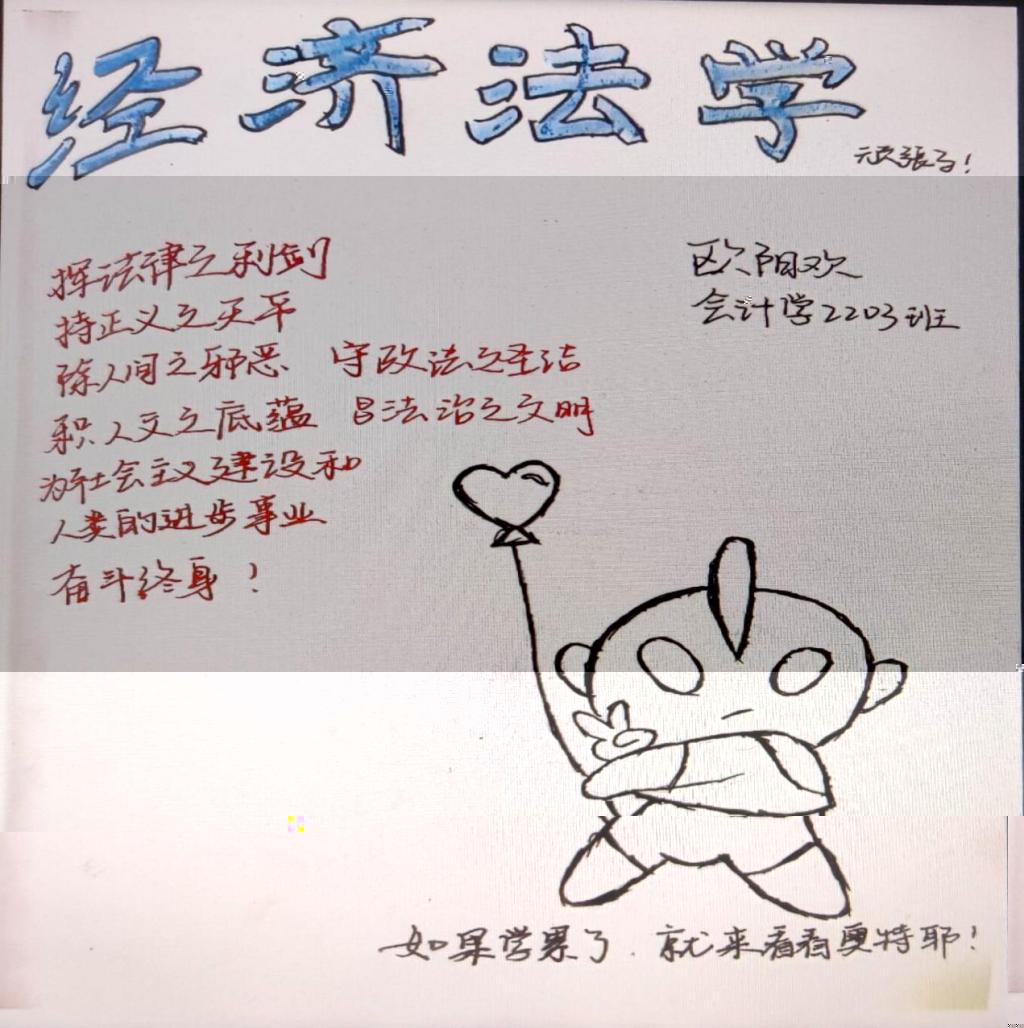 经济法学
挥法律之利剑
持正义之天平
除人间之邪恶 守政法之圣洁
积人文之底蕴 昌法治之文明
为社会主义建设和
人类的进步事业
奋斗终身！
欧阳欢
会计学2203班
如果学累了.就来看看奥特耶！